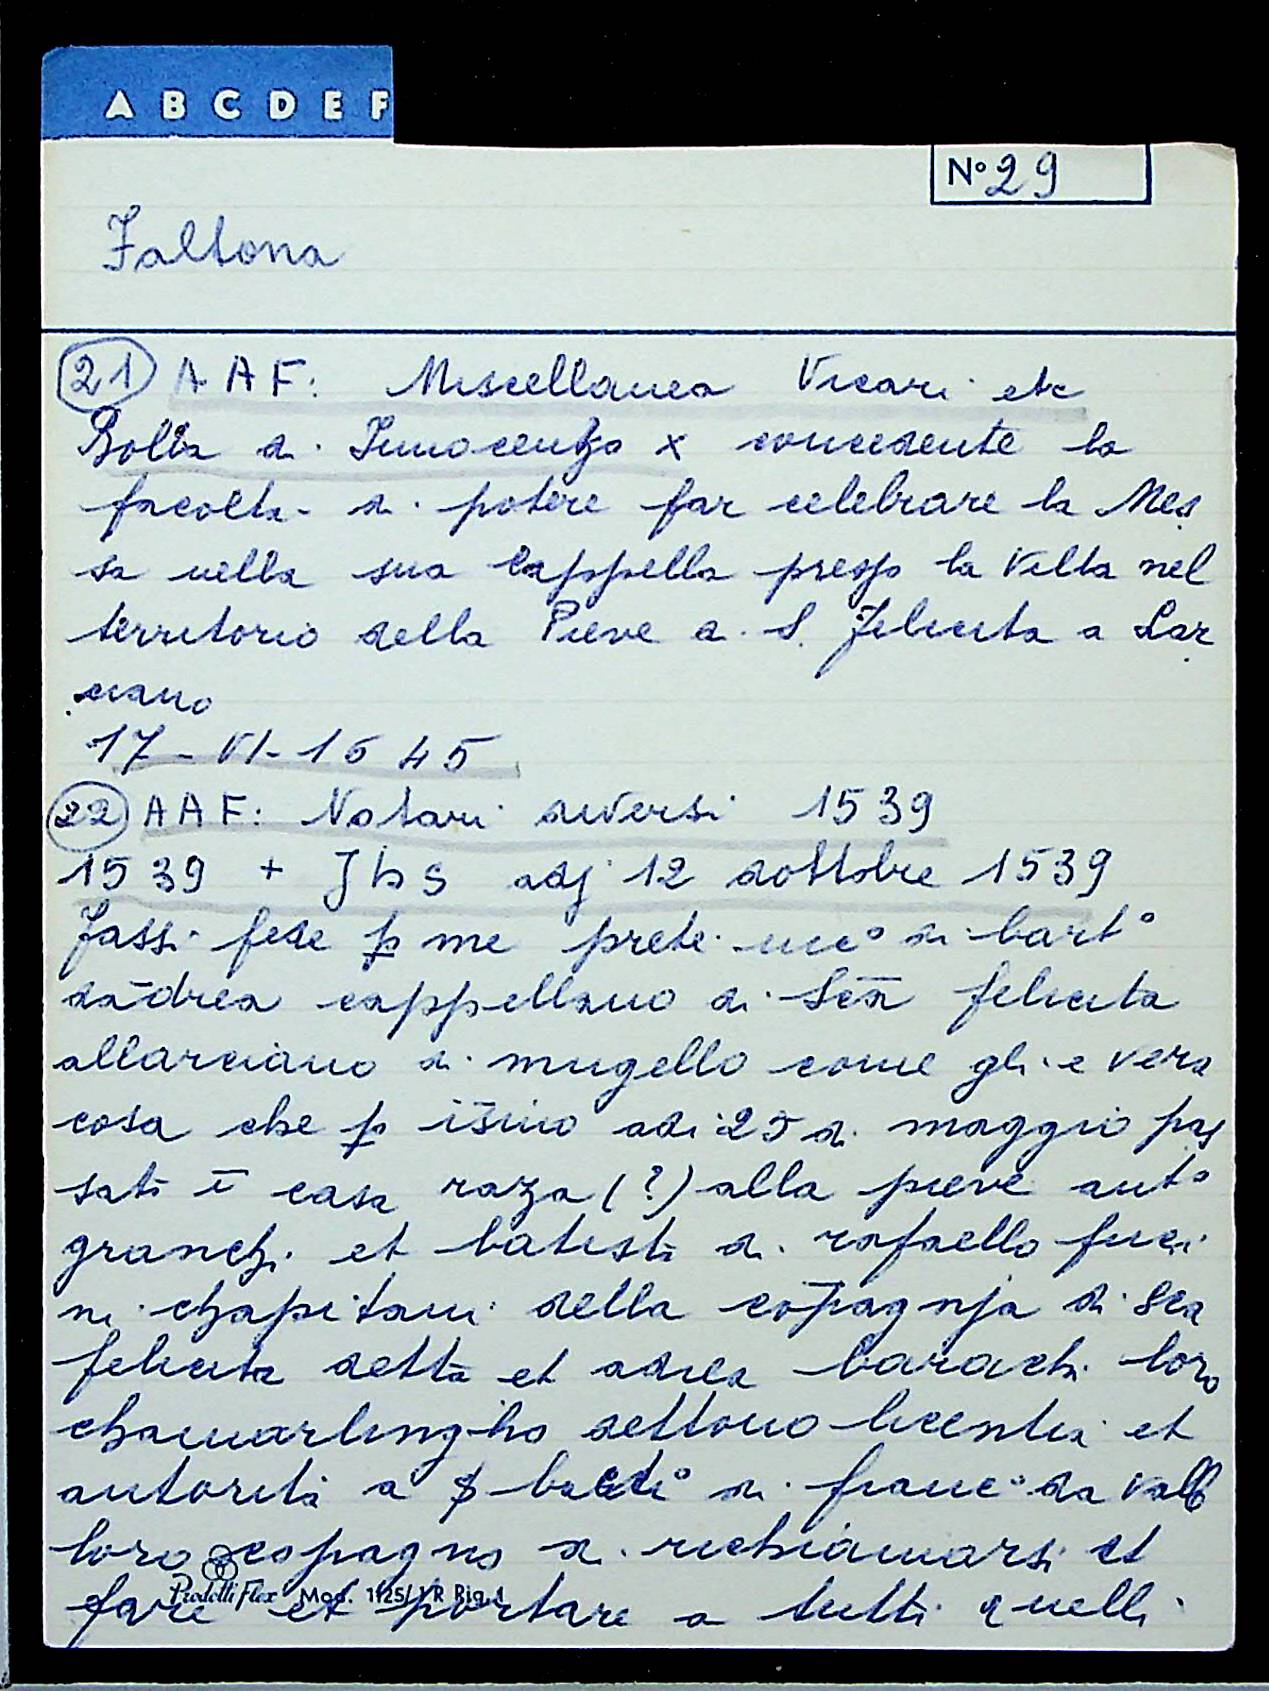 A B C D E F
Nº 29
Faltona
21 AAF: Miscellanea Vicari etc
Bolla di Innocenzo X concedente la
facoltà di potere far celebrare la Mes
sa nella sua Cappella presso la Villa nel
territorio della Pieve di S. Felicita a Lar
ciano
17-VI-1645
22 AAF: Notari diversi 1539
1539 + Jhs adj 12 dottobre 1539
Fassi fede p me prete di bartº
dādrea cappellano di Scā felicita
allarciano di mugello come gli e vera
cosa che p adi 25 di maggio pas
sati ī casa raza (?) alla pieve antº
granchi et batista di rafaello fuci
ni chapitani della cōpagnja di Sca
felicita detta et adrea barachi loro
chamarlingho dettono licentia et
autorità a di francº da
loro copagno di richiamarsi et
fare et portare a tutti quelli
Pratelli Flex Mod. 1125/VR Rig. 1